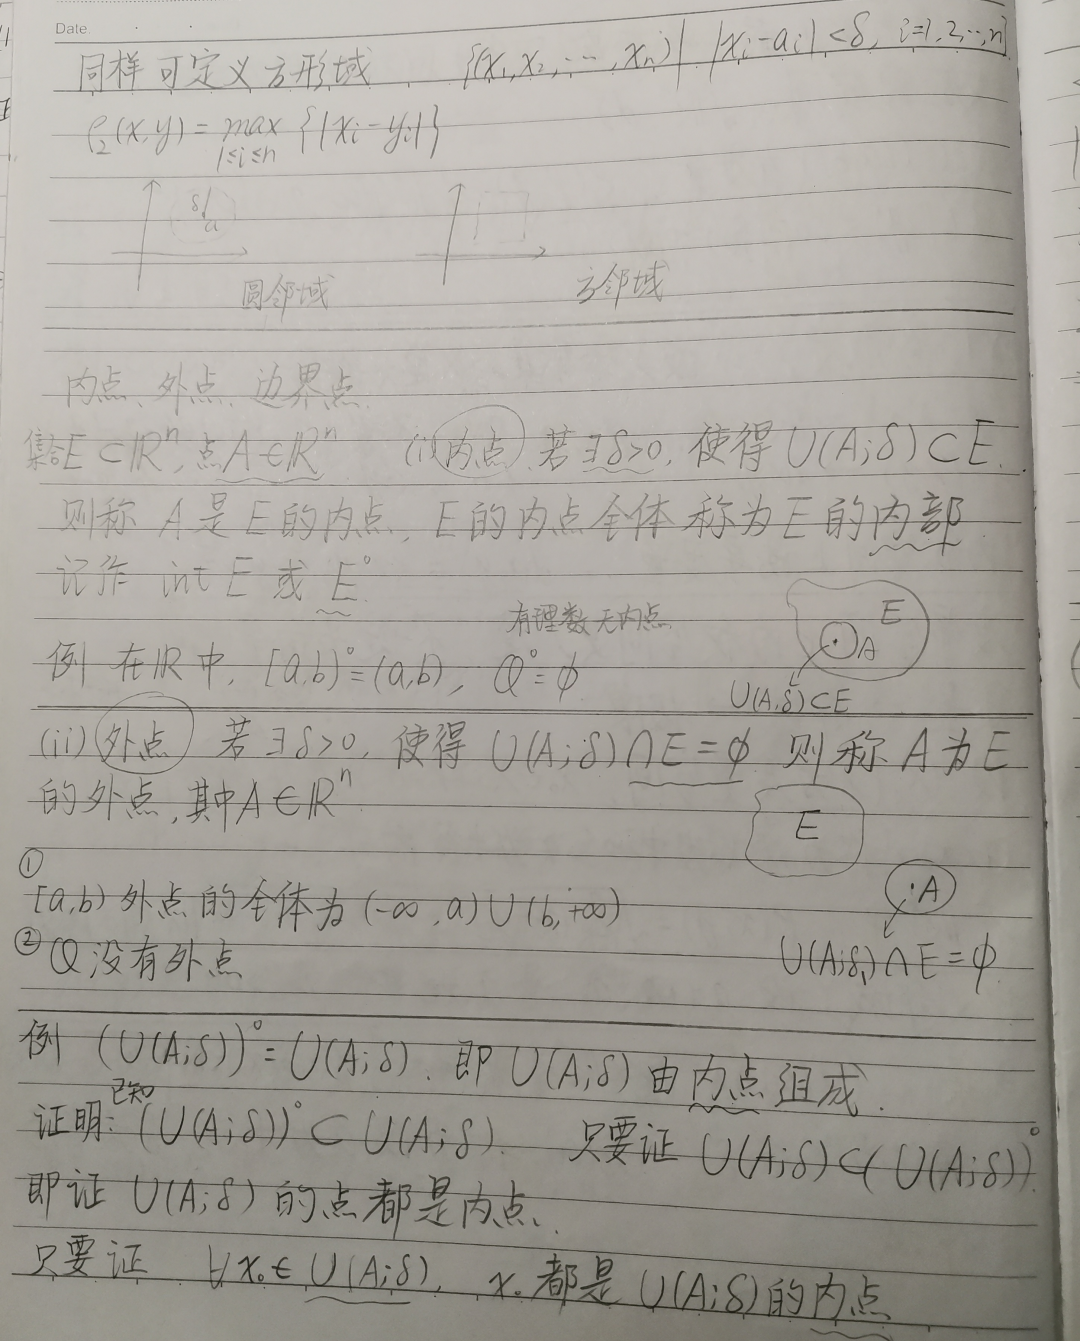 Date.
同样可定义方形域 {(x₁,x₂,…,xₙ)| |xᵢ-aᵢ|<δ, i=1,2,…,n}
ρ₂(x,y) = max {|xᵢ-yᵢ|}
1≤i≤n
δ
a
圆邻域 方邻域
内点、外点、边界点.
集合E⊂ℝⁿ,点A∈ℝⁿ (i)内点 若∃δ>0,使得U(A;δ)⊂E.
则称A是E的内点,E的内点全体称为E的内部
记作 int E 或 E°.
有理数无内点.
E
A
例 在ℝ中, [a,b)°=(a,b), Q°=φ.
U(A,δ)⊂E
(ii)外点 若∃δ>0,使得U(A;δ)∩E=φ 则称A为E
的外点,其中A∈ℝⁿ.
E
①
[a,b)外点的全体为(-∞,a)∪(b,+∞)
·A
②
Q没有外点
U(A;δ₁)∩E=φ
例 (U(A;δ))°=U(A;δ). 即U(A;δ)由内点组成.
已知
证明:(U(A;δ))°⊂U(A;δ). 只要证 U(A;δ)⊂(U(A;δ))°.
即证U(A;δ)的点都是内点.
只要证 ∀x₀∈U(A;δ), x₀都是U(A;δ)的内点